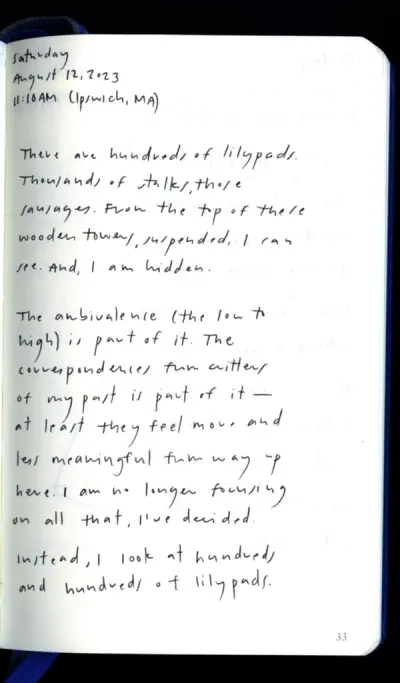 Saturday
August 12, 2023
11:10AM (Ipswich, MA)
There are hundreds of lilypads.
Thousands of stalks, those
sausages. From the top of these
wooden towers, suspended, I can
see. And, I am hidden.
The ambivalence (the low to
high) is part of it. The
correspondences from critters
of my past is part of it —
at least they feel more and
less meaningful from way up
here. I am no longer focusing
on all that, I've decided.
Instead, I look at hundreds
and hundreds of lilypads.
33